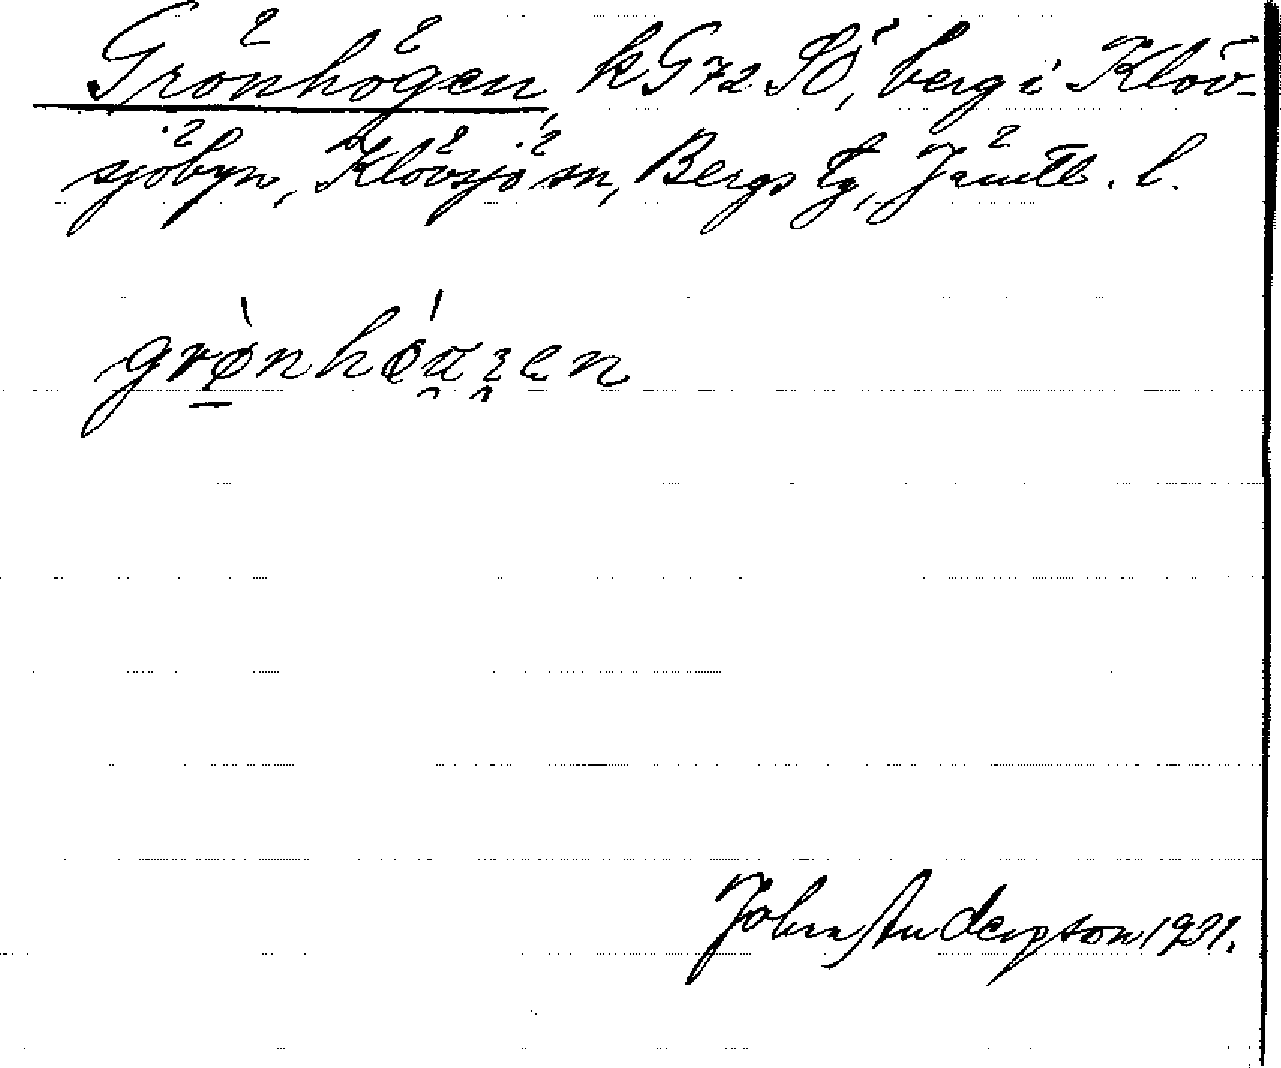 Grönhögen, kG72SÖ, berg i Klöv-
sjöbyn, Klövsjö sn, Bergs tg, Jämtl. l.
John Anderson 1931.